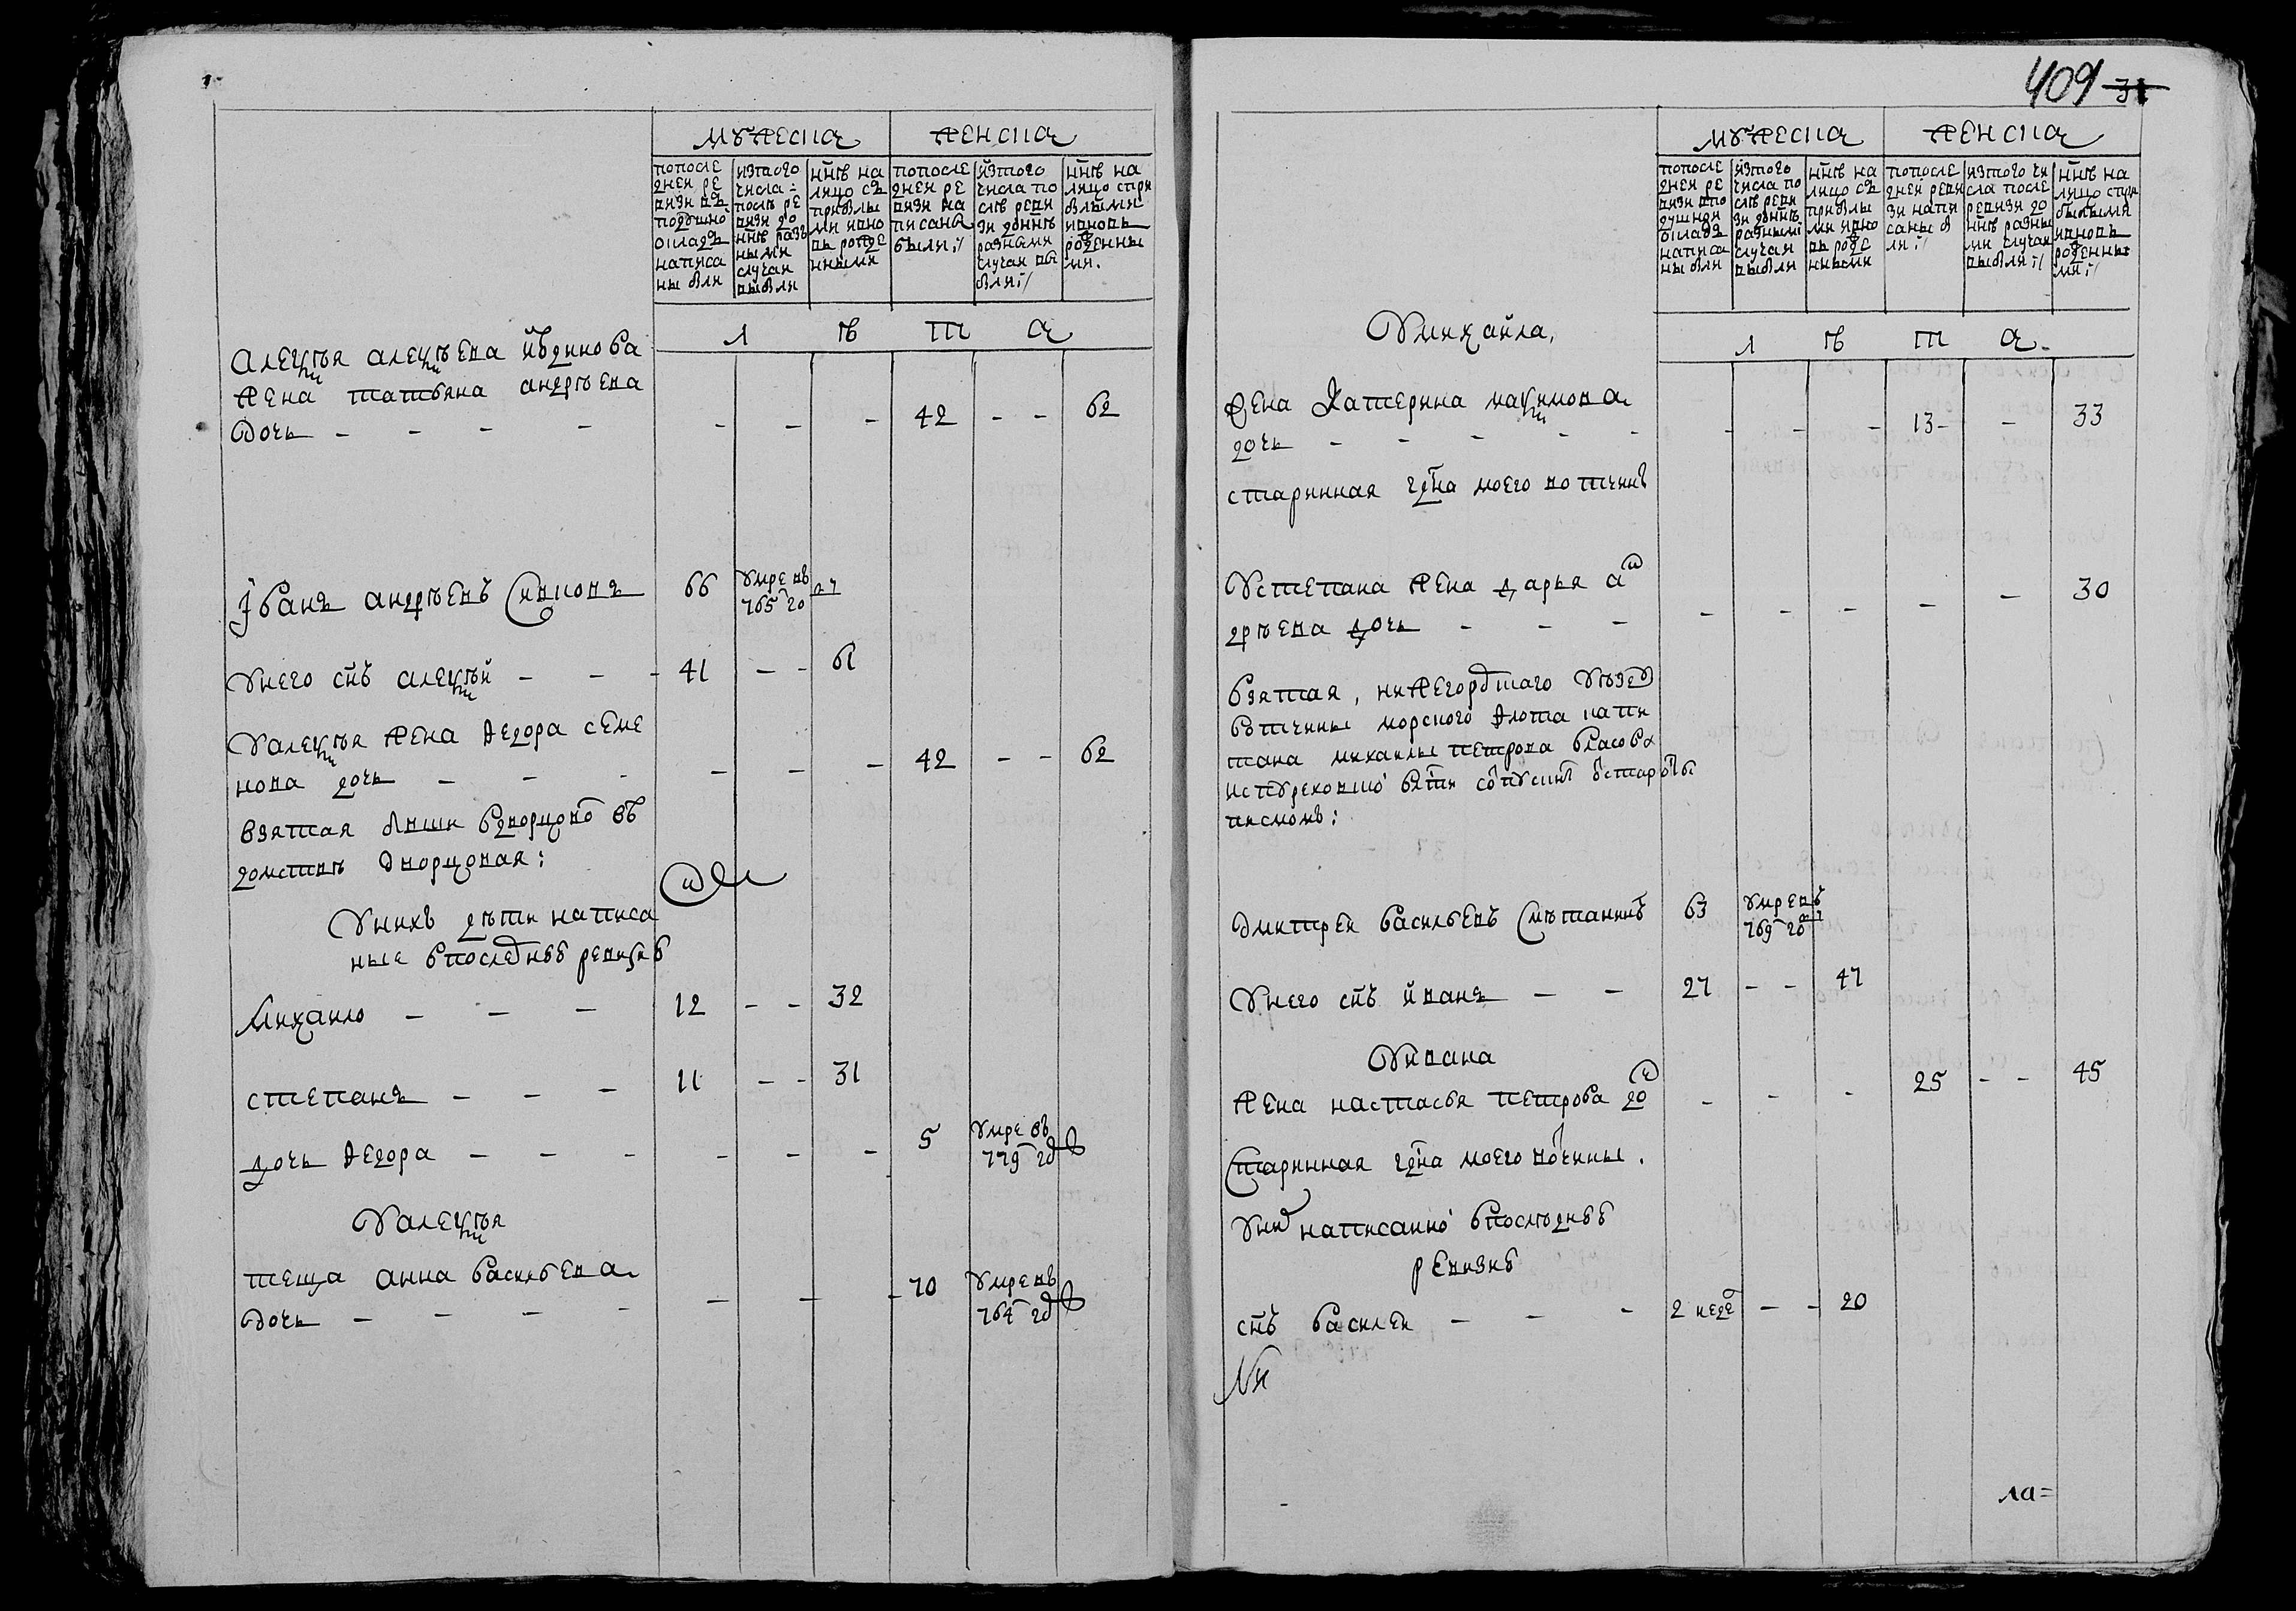 мужеска
женска
попосле
дней ре
визи въ
подушно
окладъ
написа
ны были
изтого
числа
послѣ ре
визи до
ннѣ разъ
ными
случаи
выбыли
ннѣ на
лицо съ
прибылы
ми вно
въ рожде
нными
попосле
дней ре
визи на
писаны
были
изтого
числа по
слѣ реви
зи доннѣ
разными
случаи вы
были
ннѣ на
лицо спри
былыми
ивновь
рожденны
ми.
л ѣ т а
алексѣя алексѣева
жена татьяна андрѣева
дочь - - - - - - - 42 - - 62
Iванъ андрѣевъ 66 умре въ
765 го
унего снъ алексѣй - - - 41 - - 61
Уалексѣя жена Ѳедора семе
нова дочь - - - - - - 42 - - 62
взятая
дворцовая:
Унихъ дѣти написа
ные впоследнѣе ревизиѣ
Михаило - - - 12 - - 32
степанъ - - - 11 - - 31
дочь Ѳедора - - - - - - 5 умре въ
779 гд
Уалексѣя
теща анна васильева
дочь - - - - - - - 70 умре въ
764 гд
409 31
мужеска
женска
попосле
дней ре
визи впо
душной
окладъ
написа
ны были
изтого
числа по
слѣ реви
зи доннѣ
разными
случаи
выбыли
ннѣ на
лицо съ
прибылы
ми вно
въ рожде
нными
попосле
дней реви
зи напи
саны бы
ли
изтого чи
сла после
ревизи до
ннѣ разны
ми случаи
выбыли
ннѣ на
лицо спри
былыми
ивновь
рожденны
ми
л ѣ т а
Умихайла,
жена Катерина максимова
дочь - - - - - - - - 13 - - 33
старинная моего вотчинѣ
Устепана жена дарья ан
дрѣева дочь - - - - - - - - 30
взятая, нижегородцкаго уѣзду
вотчины морского флота капи
тана михаилы петрова власова
писмомъ:
дмитрей васильевъ 63 умре въ
769 го
Унего снъ иванъ - - 27 - - 47
Уивана
жена настасья петрова до - - - 25 - - 45
Старинная моего вочины.
Уних написанно впослѣднѣе
ревизиѣ
снъ василей - - - 2 неде - - 20
Ми
ла=